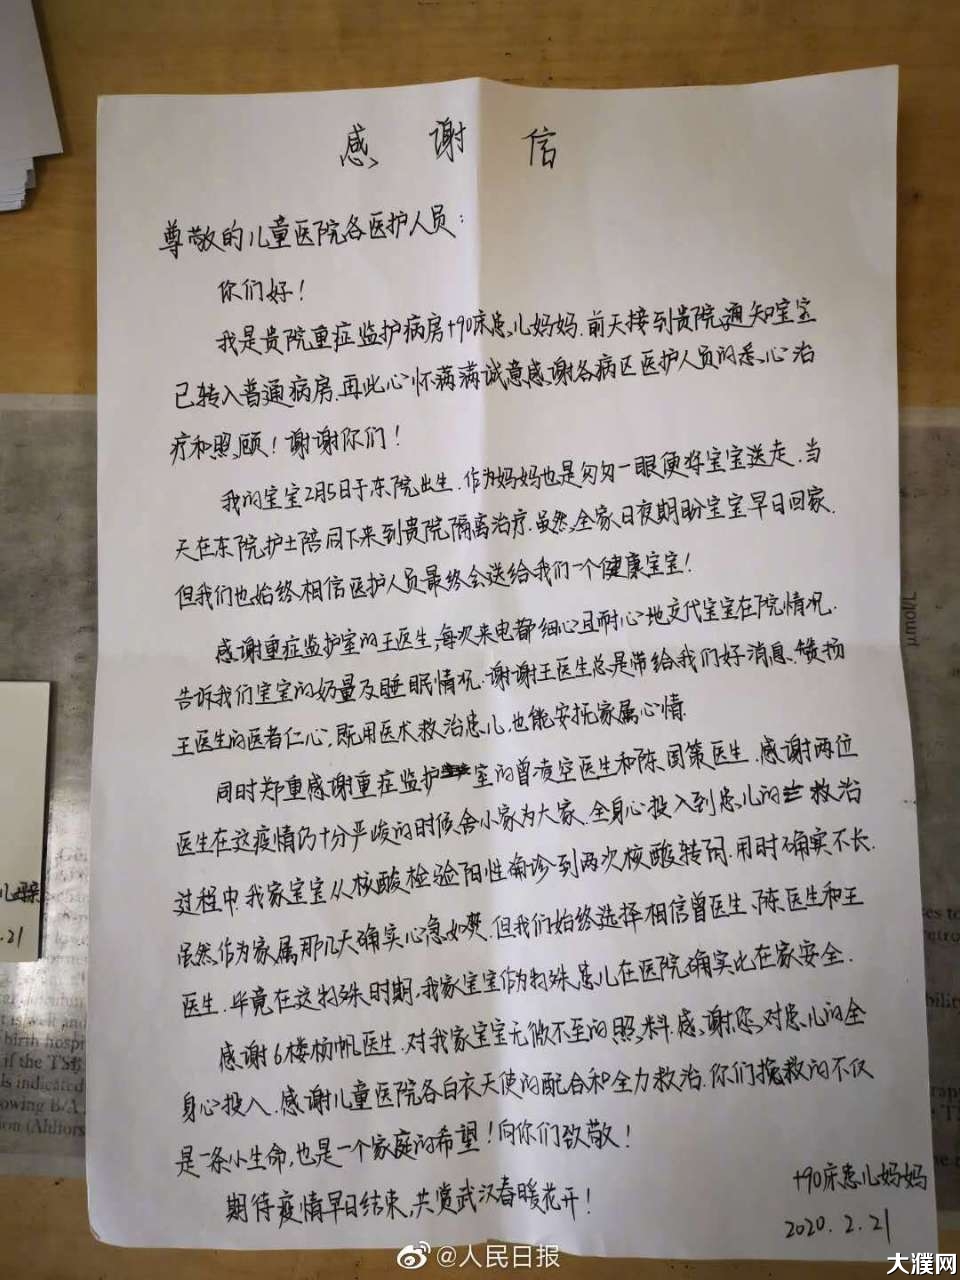 感谢信
尊敬的儿童医院各医护人员:
你们好!
我是贵院重症监护病房+90床患儿妈妈.前天接到贵院通知宝宝
已转入普通病房.再此心怀满满诚意感谢各病区医护人员的悉心治
疗和照顾!谢谢你们!
我的宝宝2月5日于东院出生.作为妈妈也是匆匆一眼便将宝宝送走.当
天在东院护士陪同下来到贵院隔离治疗.虽然,全家日夜期盼宝宝早日回家.
但我们也始终相信医护人员最终会送给我们一个健康宝宝!
感谢重症监护室的王医生,每次来电都细心且耐心地交代宝宝在院情况.
告诉我们宝宝的奶量及睡眠情况.谢谢王医生总是带给我们好消息.赞扬
王医生的医者仁心,既用医术救治患儿,也能安抚家属心情.
同时郑重感谢重症监护室的曾凌空医生和陈国策医生.感谢两位
医生在这疫情仍十分严峻的时候舍小家为大家.全身心投入到患儿的救治
过程中.我家宝宝从核酸检验阳性确诊到两次核酸转阴.用时确实不长.
虽然,作为家属那几天确实心急如焚.但我们始终选择相信曾医生、陈医生和王
医生.毕竟在这特殊时期,我家宝宝作为特殊患儿在医院确实比在家安全.
感谢6楼杨帆医生.对我家宝宝无微不至的照料.感谢您对患儿的全
身心投入.感谢儿童医院各白衣天使的配合和全力救治.你们挽救的不仅
是一条小生命,也是一个家庭的希望!向你们致敬!
期待疫情早日结束,共赏武汉春暖花开!
+90床患儿妈妈
2020.2.21
.21
μmol/L
birth hosp
if the TS
is indicated
owing B/A
@人民日报
大濮网